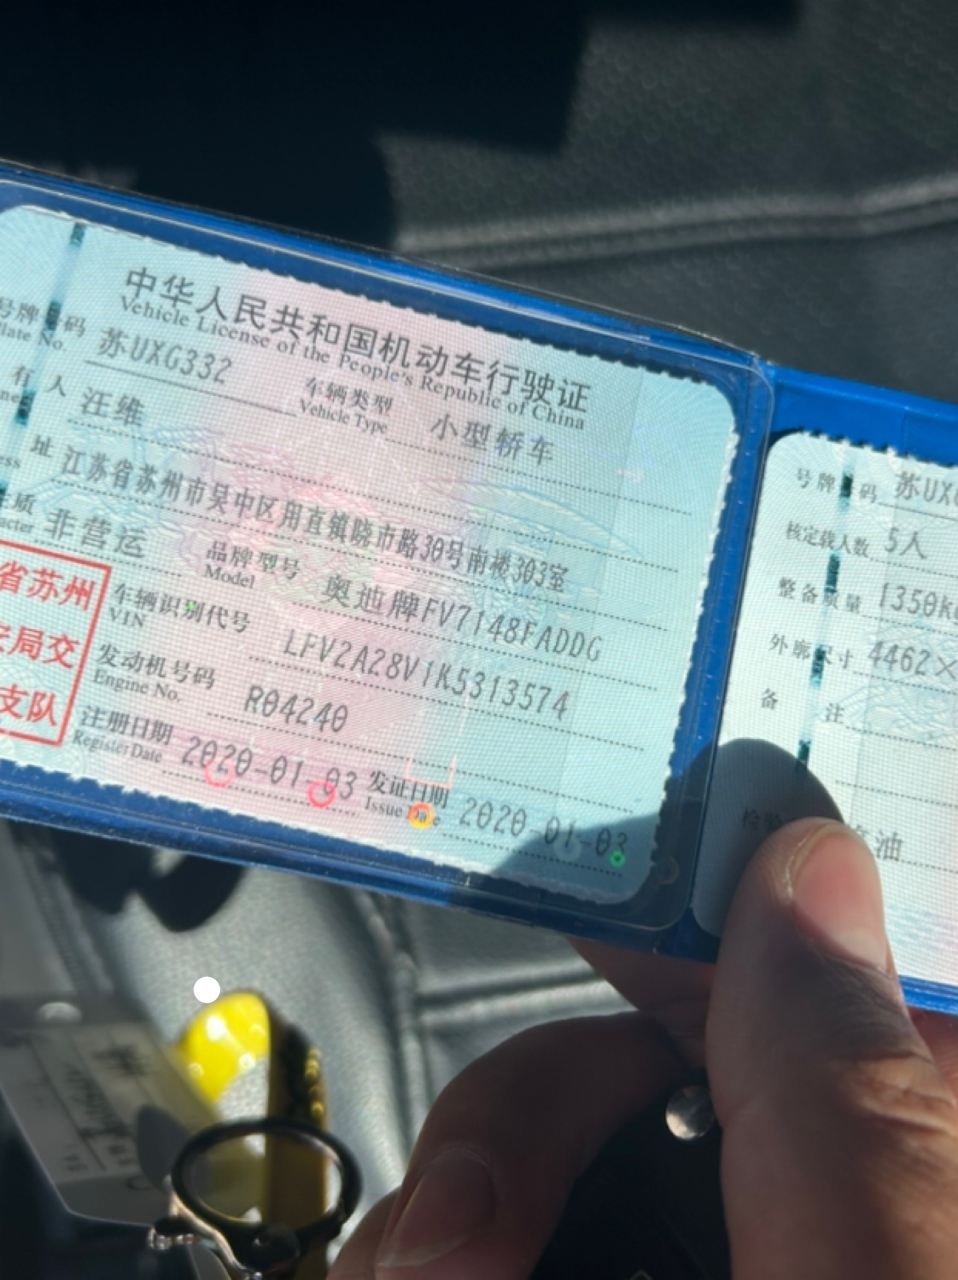 中华人民共和国机动车行驶证
Vehicle License of the People's Republic of China
号牌号码 苏UXG332 车辆类型 小型轿车
Plate No. Vehicle Type
有人 汪维
址 江苏省苏州市吴中区甪直镇晓市路30号南楼303室
质 非营运 品牌型号 奥迪牌FV7148FADDG
acter Model
车辆识别代号 LFV2A28V1K5313574
VIN
发动机号码 R04240
Engine No.
注册日期 2020-01-03 发证日期 2020-01-03
Register Date Issue Date
省苏州
安局交
支队
号牌号码 苏UX
核定载人数 5人
整备质量 1350K
外廓尺寸 4462×
备注
检验
油